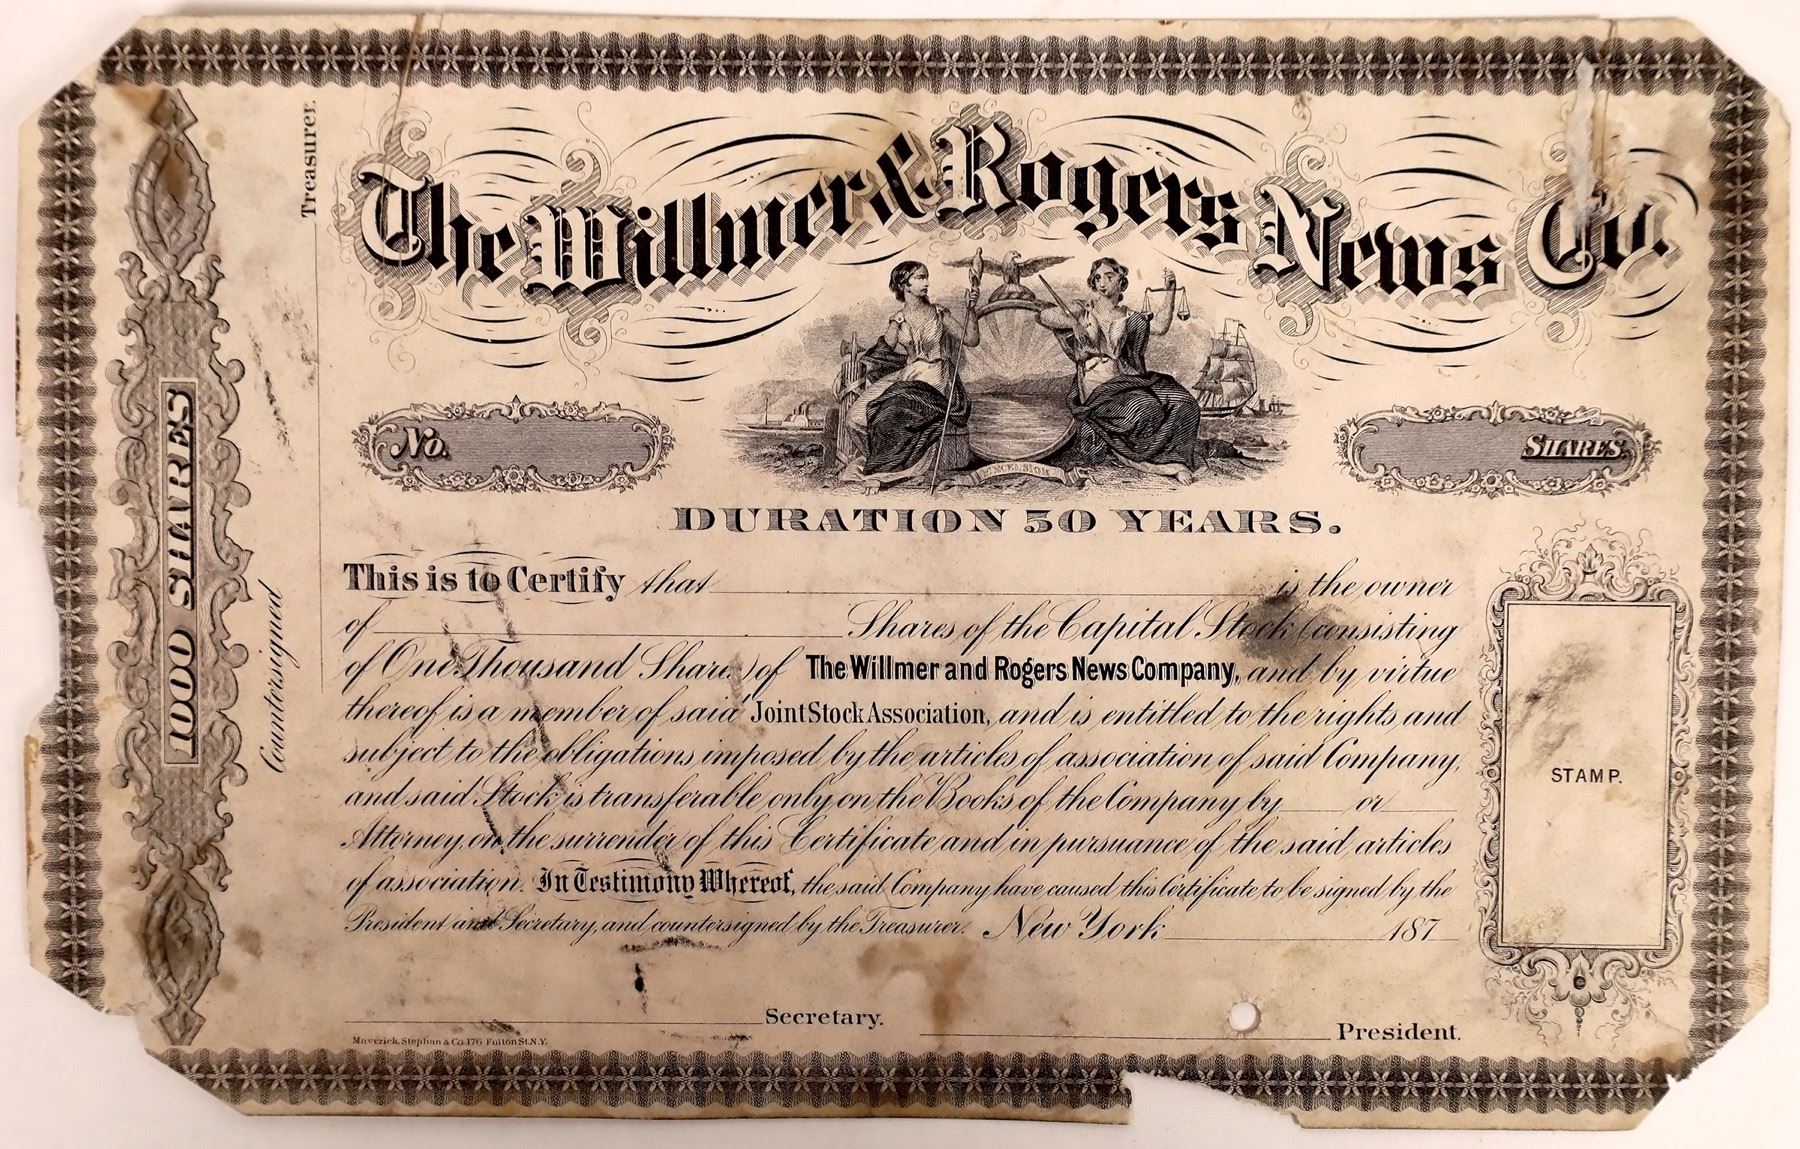 The Willmer & Rogers News Co.
No.
SHARES.
EXCELSIOR
DURATION 50 YEARS.
This is to Certify that is the owner
of Shares of the Capital Stock (consisting
of One Thousand Shares) of The Willmer and Rogers News Company, and by virtue
thereof is a member of said Joint Stock Association, and is entitled to the rights and
subject to the obligations imposed by the articles of association of said Company,
and said Stock is transferable only on the Books of the Company by or
Attorney, on the surrender of this Certificate and in pursuance of the said articles
of association. In Testimony Whereof, the said Company have caused this Certificate to be signed by the
President and Secretary, and countersigned by the Treasurer. New York 187
Secretary.
President.
Maverick, Stephan & Co. 176 Fulton St. N.Y.
STAMP.
1000 SHARES
Countersigned Treasurer.